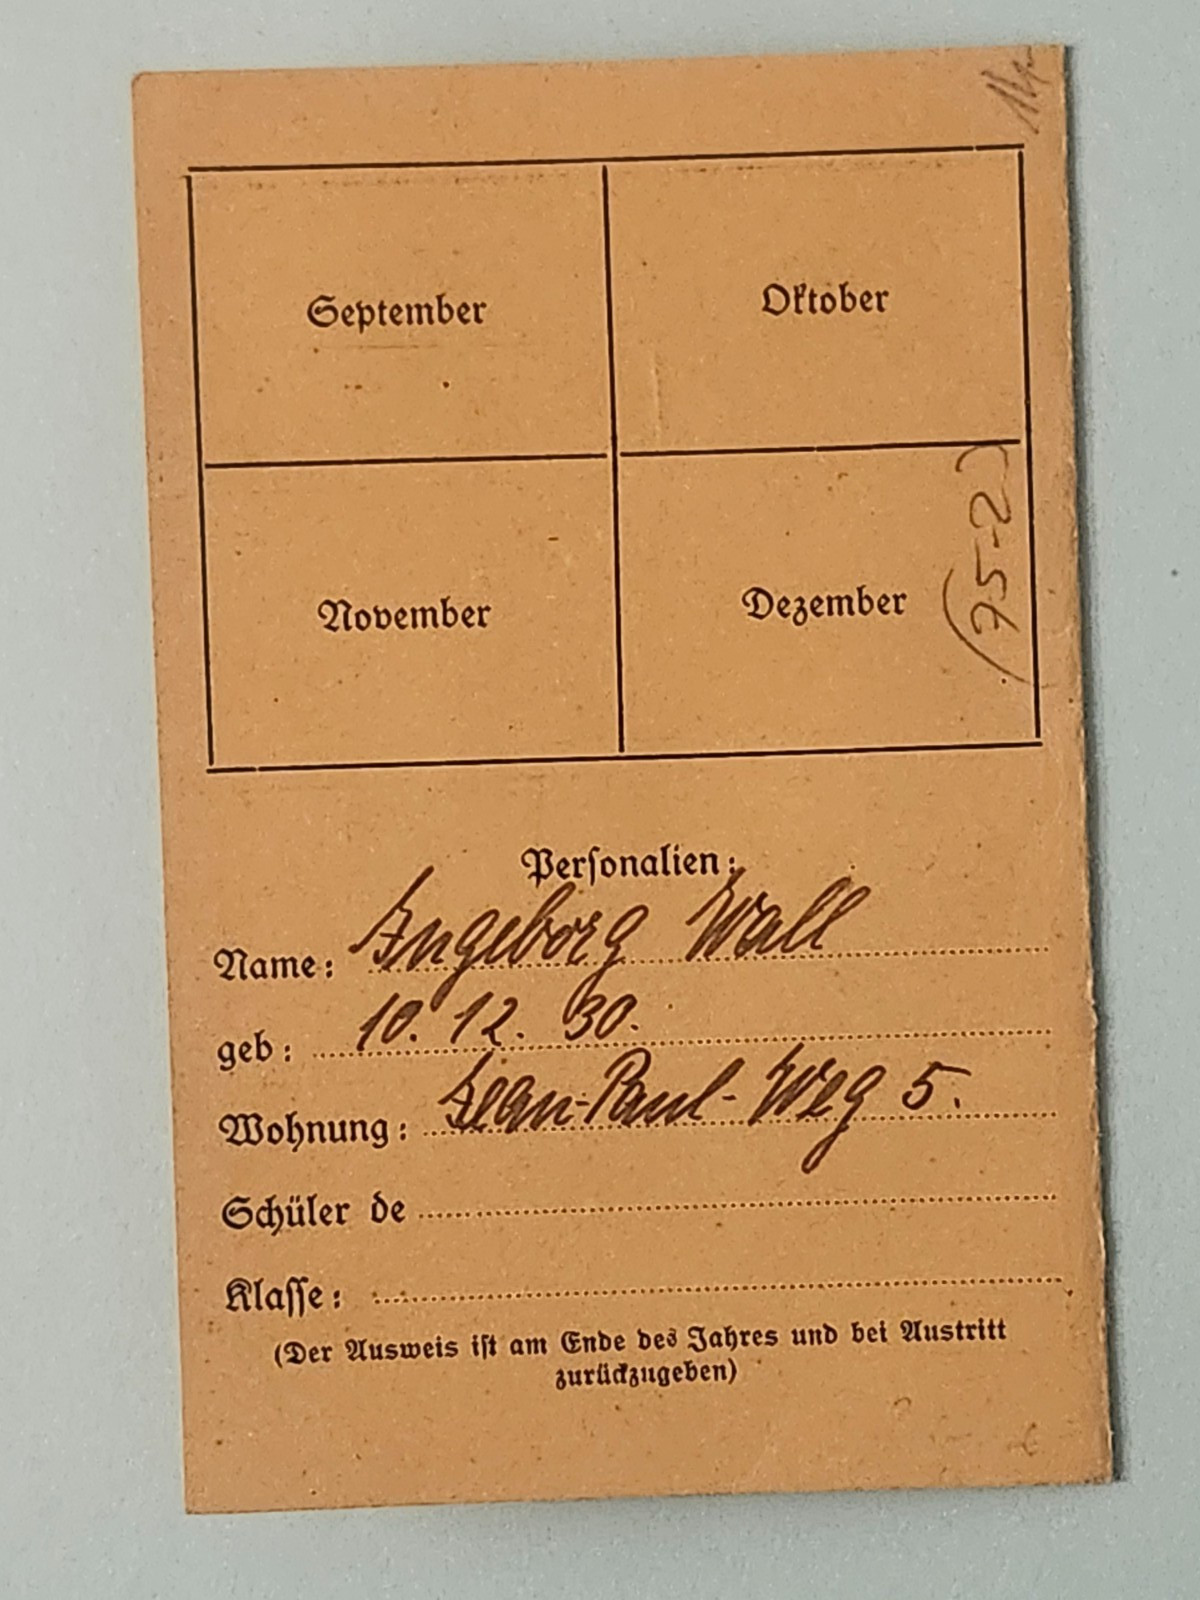 September Oktober
November Dezember
(75-2)
Personalien:
Name: Ingeborg Wall
geb: 10. 12. 30.
Wohnung: Jean-Paul-Weg 5.
Schüler de
Klasse:
(Der Ausweis ist am Ende des Jahres und bei Austritt
zurückzugeben)